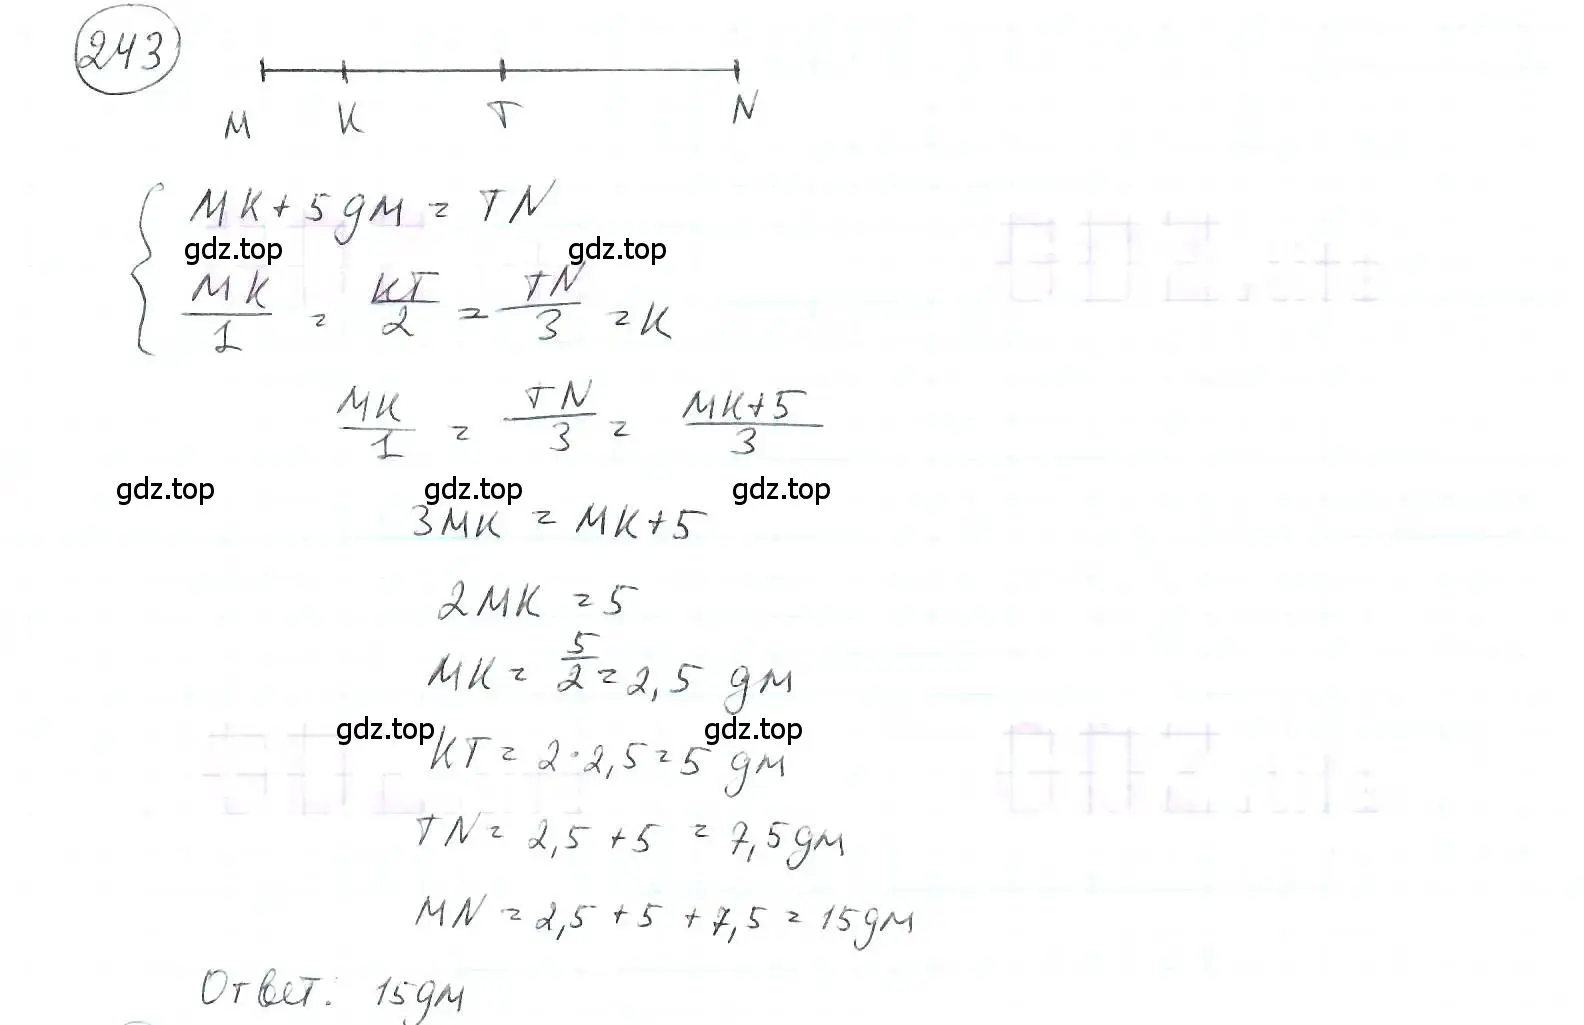 243
M K T N
MK + 5 дм = TN
gdz.top gdz.top
MK/1 = KT/2 = TN/3 = K
MK/1 = TN/3 = MK+5/3
gdz.top gdz.top gdz.top
3MK = MK+5
2MK = 5
MK = 5/2 = 2,5 дм
gdz.top gdz.top
KT = 2·2,5 = 5 дм
TN = 2,5 + 5 = 7,5 дм
MN = 2,5 + 5 + 7,5 = 15 дм
Ответ: 15 дм